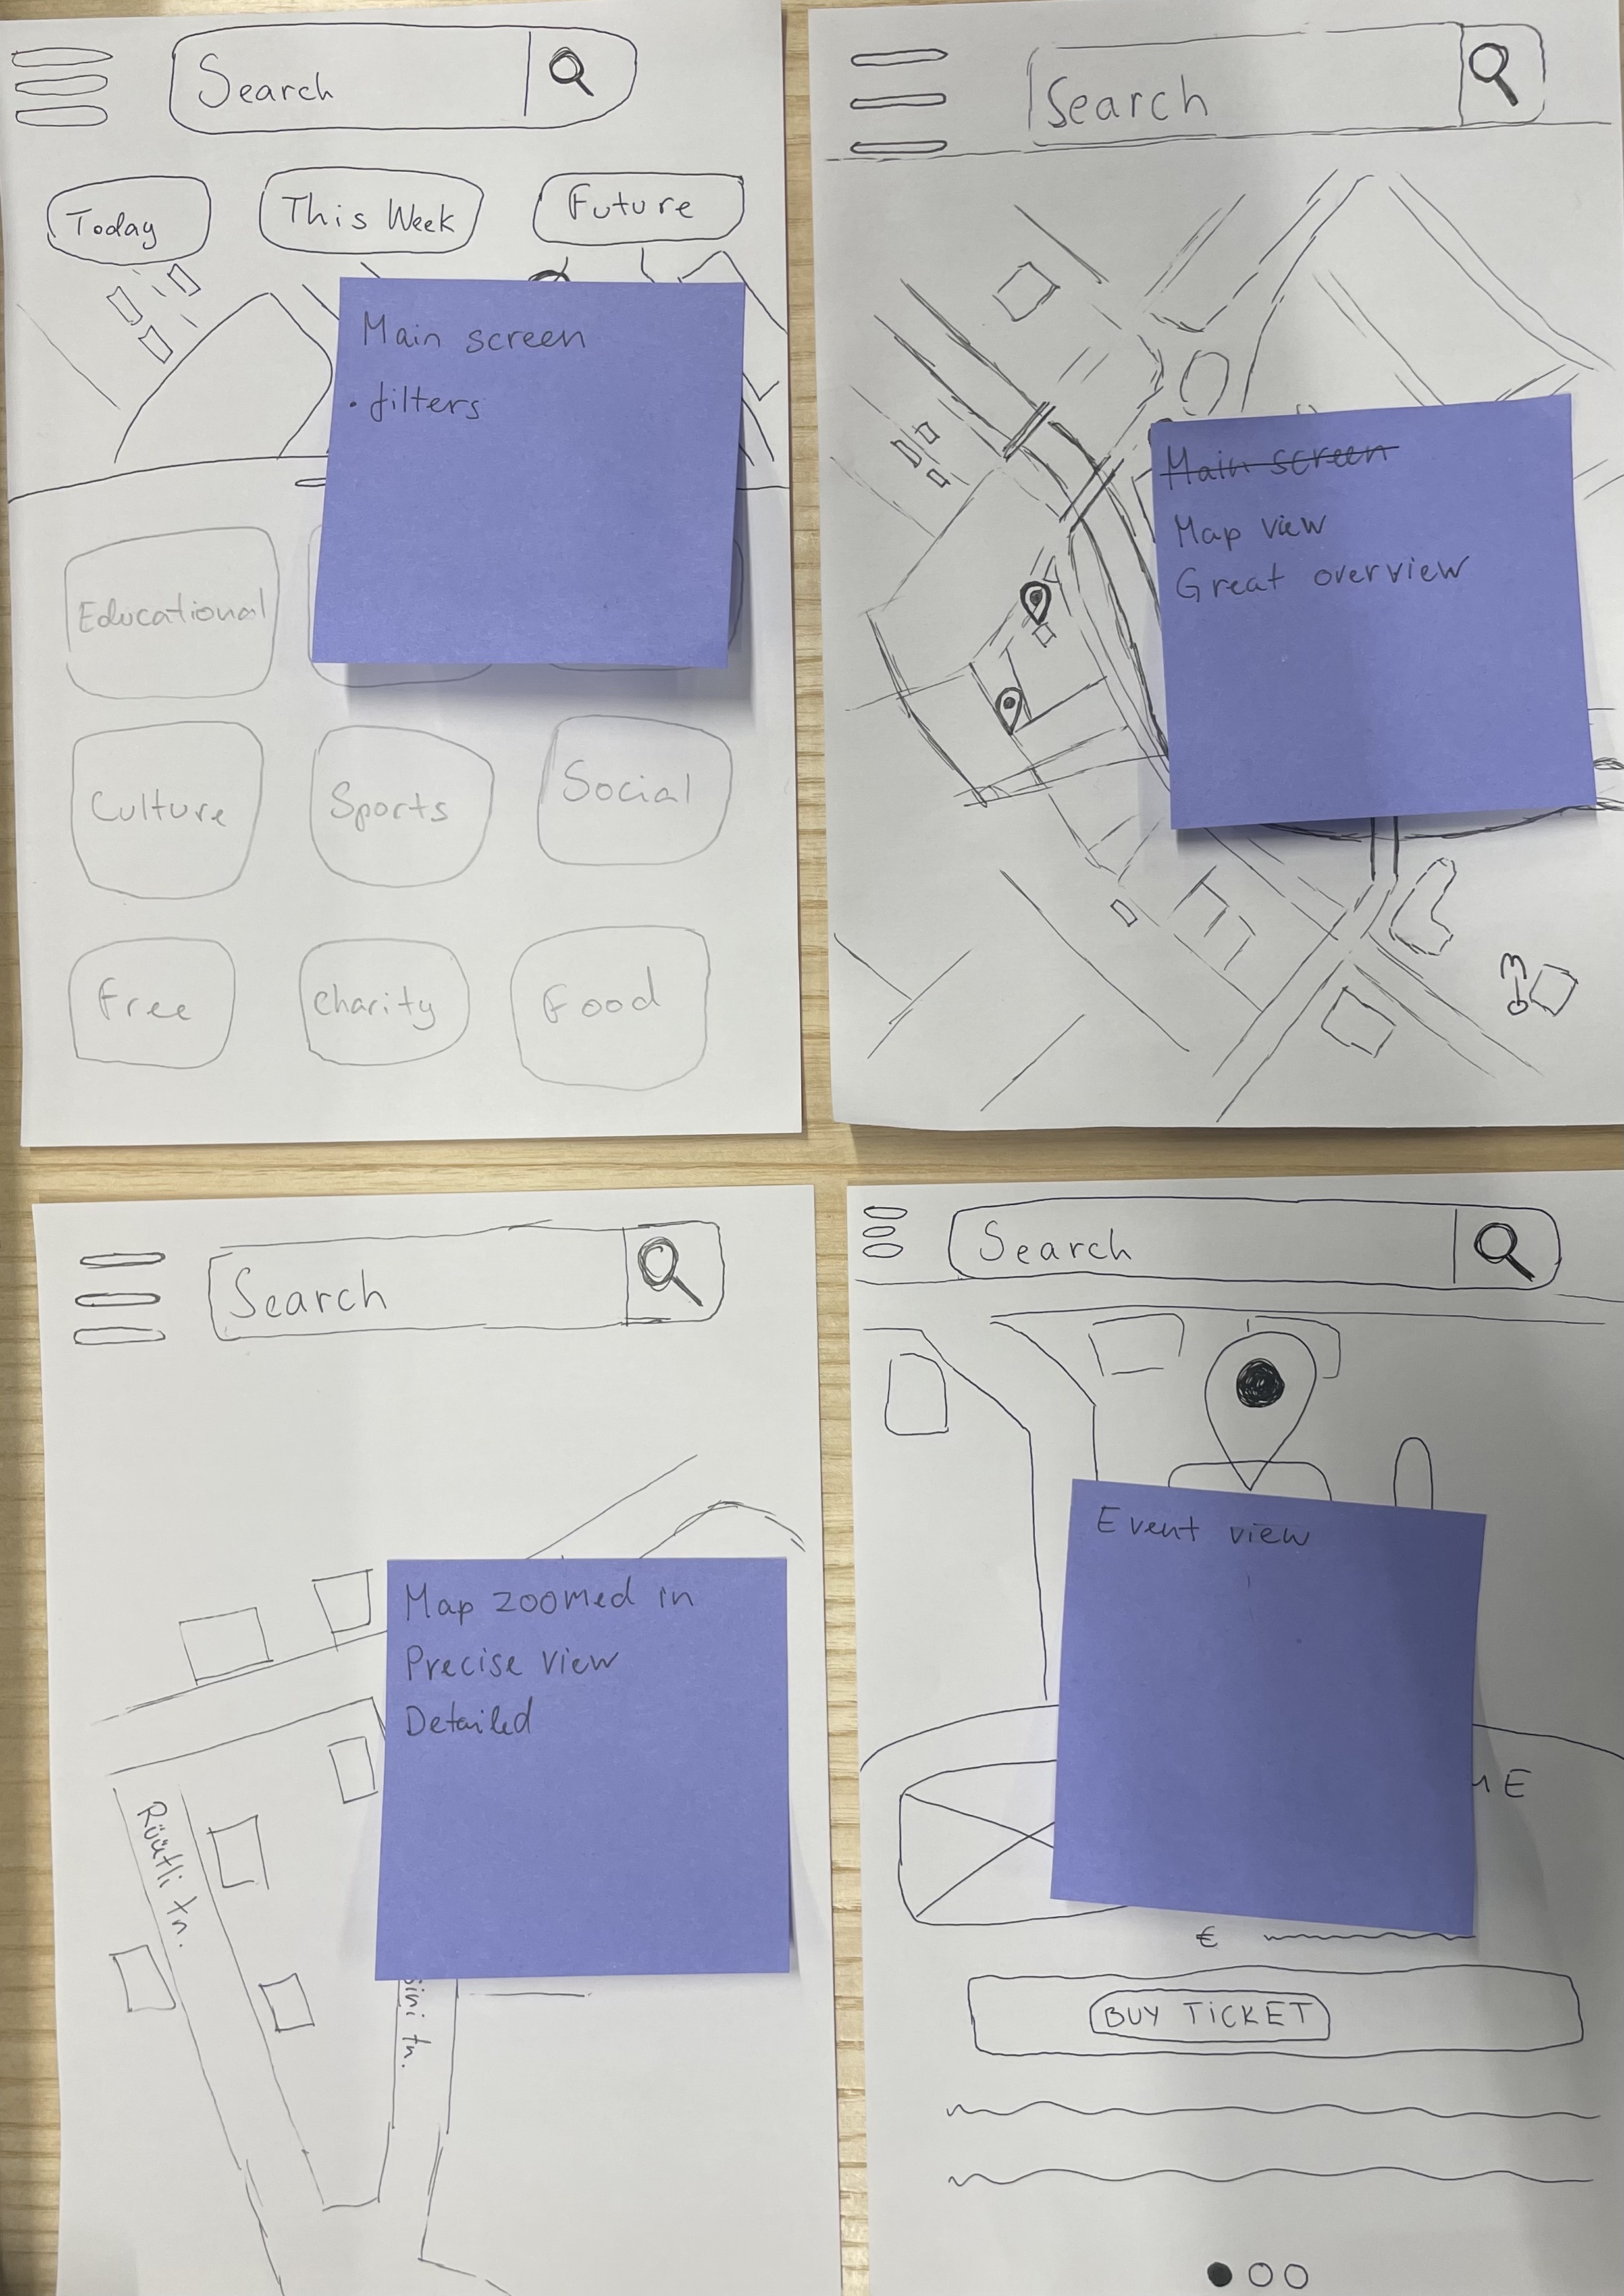 Search
Today
This Week
Future
Main screen
• filters
Educational
Culture
Sports
Social
Free
Charity
Food
Search
Main screen
Map view
Great overview
Search
Map zoomed in
Precise view
Detailed
Rüütli tn.
tn.
Search
Event view
€
BUY TICKET